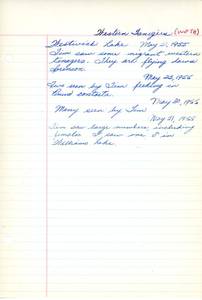 Western Tanagers
Westwick Lake May 21, 1955
Tim saw some migrant western
tanagers. They are flying down
May 22, 1955
Two seen by Tim feeding in
May 20, 1955
Many seen by Tim
May 21, 1955
Tim saw large numbers, including
females. I saw one ♂ in
Williams Lake.